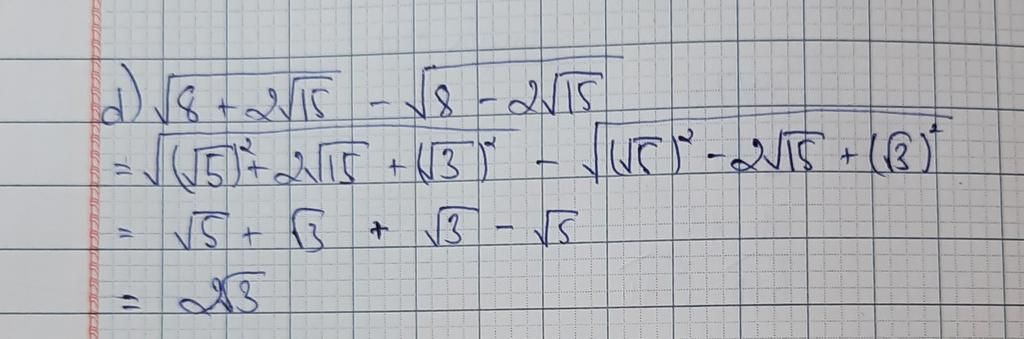 d) √(8 + 2√15) - √(8 - 2√15)
= √((√5)² + 2√15 + (√3)²) - √((√5)² - 2√15 + (√3)²)
= √5 + √3 + √3 - √5
= 2√3